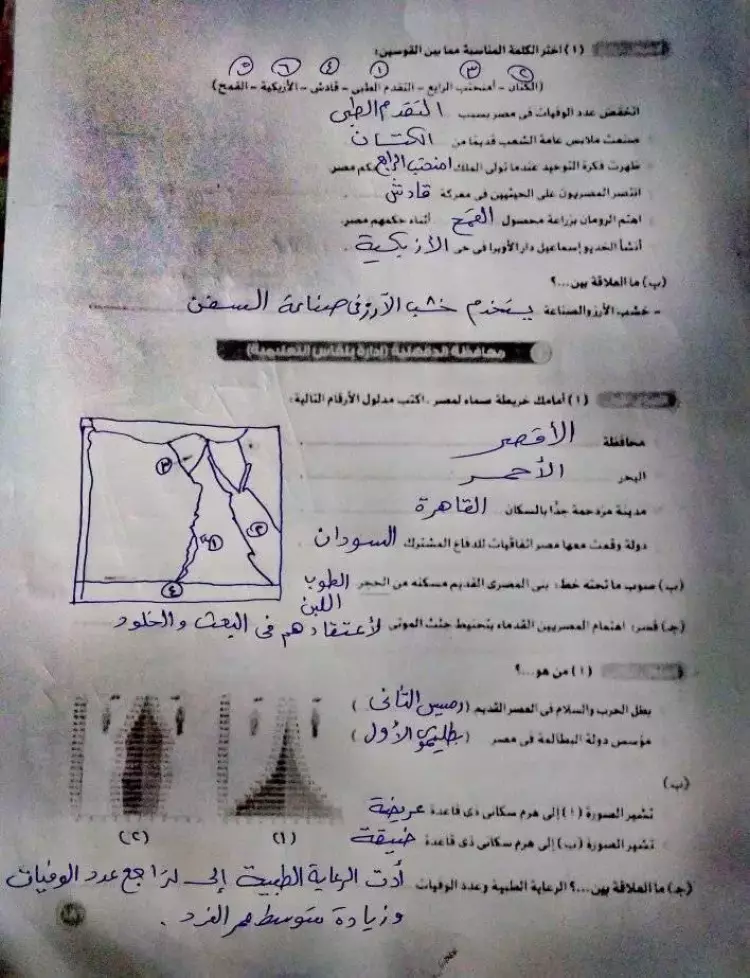 (أ) اختر الكلمة المناسبة مما بين القوسين:
٢ ٣ ١ ٤ ٦ ٥
(الكتان - أمنحتب الرابع - التقدم الطبي - قادش - الأزبكية - القمح)
انخفض عدد الوفيات فى مصر بسبب التقدم الطبى
صنعت ملابس عامة الشعب قديمًا من الكتان
ظهرت فكرة التوحيد عندما تولى الملك امنحتب الرابع حكم مصر.
انتصر المصريون على الحيثيين فى معركة قادش
اهتم الرومان بزراعة محصول القمح أثناء حكمهم مصر.
أنشأ الخديو إسماعيل دار الأوبرا فى حى الأزبكية .
(ب) ما العلاقة بين...؟
- خشب الأرز والصناعة يستخدم خشب الأرز فى صناعة السفن
محافظة الدقهلية (إدارة بلقاس التعليمية)
(أ) أمامك خريطة صماء لمصر، اكتب مدلول الأرقام التالية:
محافظة الأقصر
البحر الأحمر
مدينة مزدحمة جدًا بالسكان القاهرة
دولة وقعت معها مصر اتفاقيات للدفاع المشترك السودان
٣
٢
١
٤
(ب) صوب ما تحته خط: بنى المصرى القديم مسكنه من الحجر الطوب اللبن
(جـ) فسر: اهتمام المصريين القدماء بتحنيط جثث الموتى لأعتقادهم فى البعث والخلود
(أ) من هو...؟
بطل الحرب والسلام فى العصر القديم (رمسيس الثانى)
مؤسس دولة البطالمة فى مصر (بطليموس الأول)
(ب)
تشير الصورة (أ) إلى هرم سكانى ذى قاعدة عريضة
تشير الصورة (ب) إلى هرم سكانى ذى قاعدة ضيقة
(١) (٢)
(جـ) ما العلاقة بين...؟ الرعاية الطبية وعدد الوفيات أدت الرعاية الطبية إلى تراجع عدد الوفيات
وزيادة متوسط عمر الفرد .